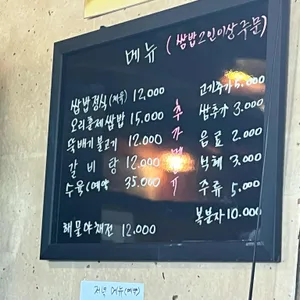 메뉴 (쌈밥 2인이상 주문)
쌈밥정식(제육) 12,000
오리훈제쌈밥 15,000
뚝배기불고기 12,000
갈비탕 12,000
수육(예약) 35,000
해물야채전 12,000
추가메뉴
고기추가 5,000
쌈추가 3,000
음료 2,000
식혜 3,000
주류 5,000
복분자 10,000
저녁 메뉴(예약)